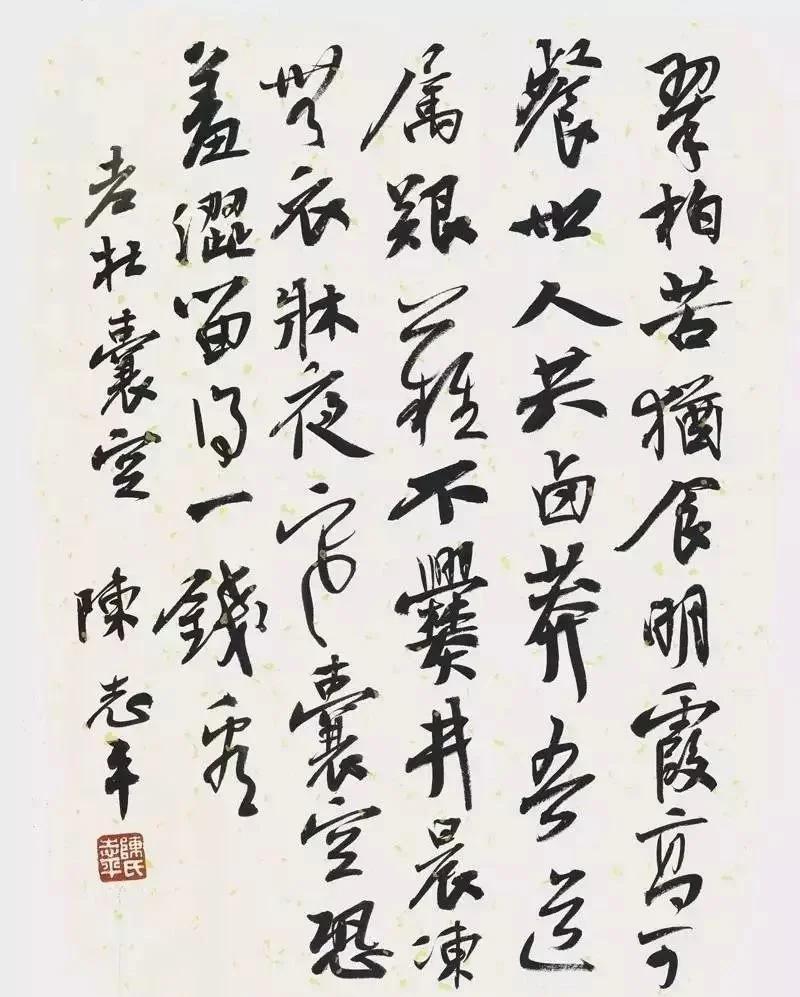 翠柏苦猶食明霞高可
餐世人共鹵莽吾道
属艱難不爨井晨凍
無衣牀夜寒囊空恐
羞澀留得一錢看
老杜囊空 陳志平
陳氏志平